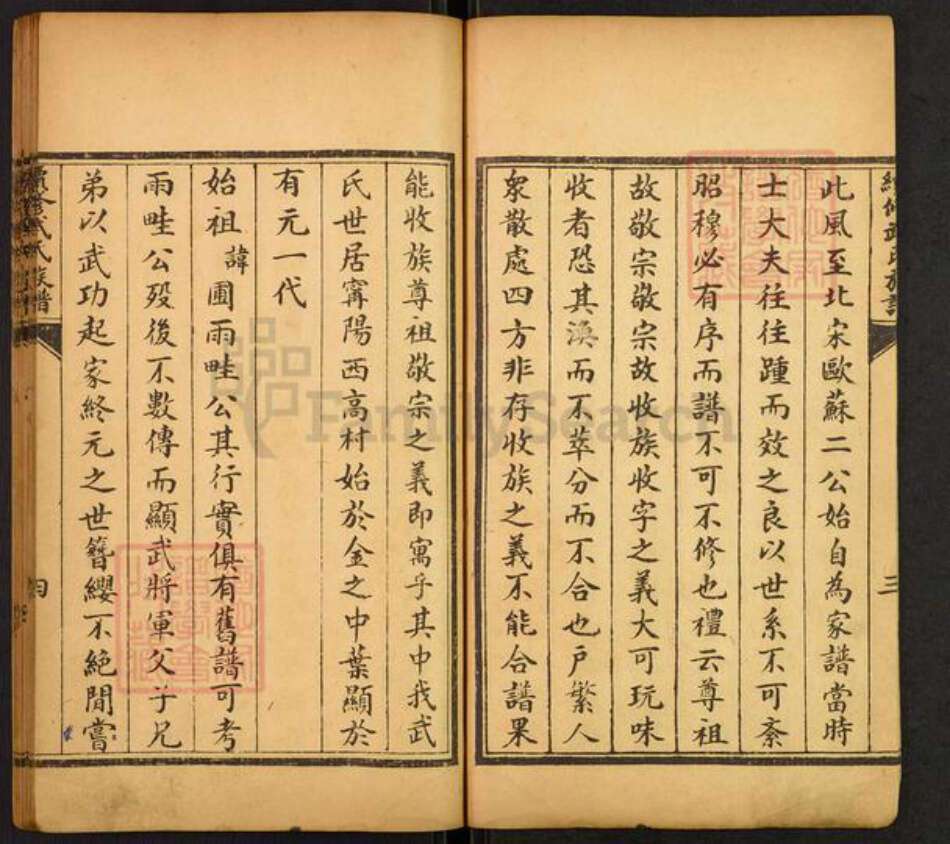 續修武氏族譜
三
此風至北宋歐蘇二公始自為家譜當時
士大夫往往踵而效之良以世系不可紊
昭穆必有序而譜不可不修也禮云尊祖
故敬宗敬宗故收族收字之義大可玩味
收者恐其渙而不萃分而不合也戶繁人
衆散處四方非存收族之義不能合譜果
能收族尊祖敬宗之義即寓乎其中我武
氏世居甯陽西高村始於金之中葉顯於
有元一代
始祖諱圃雨畦公其行實俱有舊譜可考
雨畦公歿後不數傳而顯武將軍父子兄
弟以武功起家終元之世簪纓不絕間嘗
續修武氏族譜
四
FamilySearch